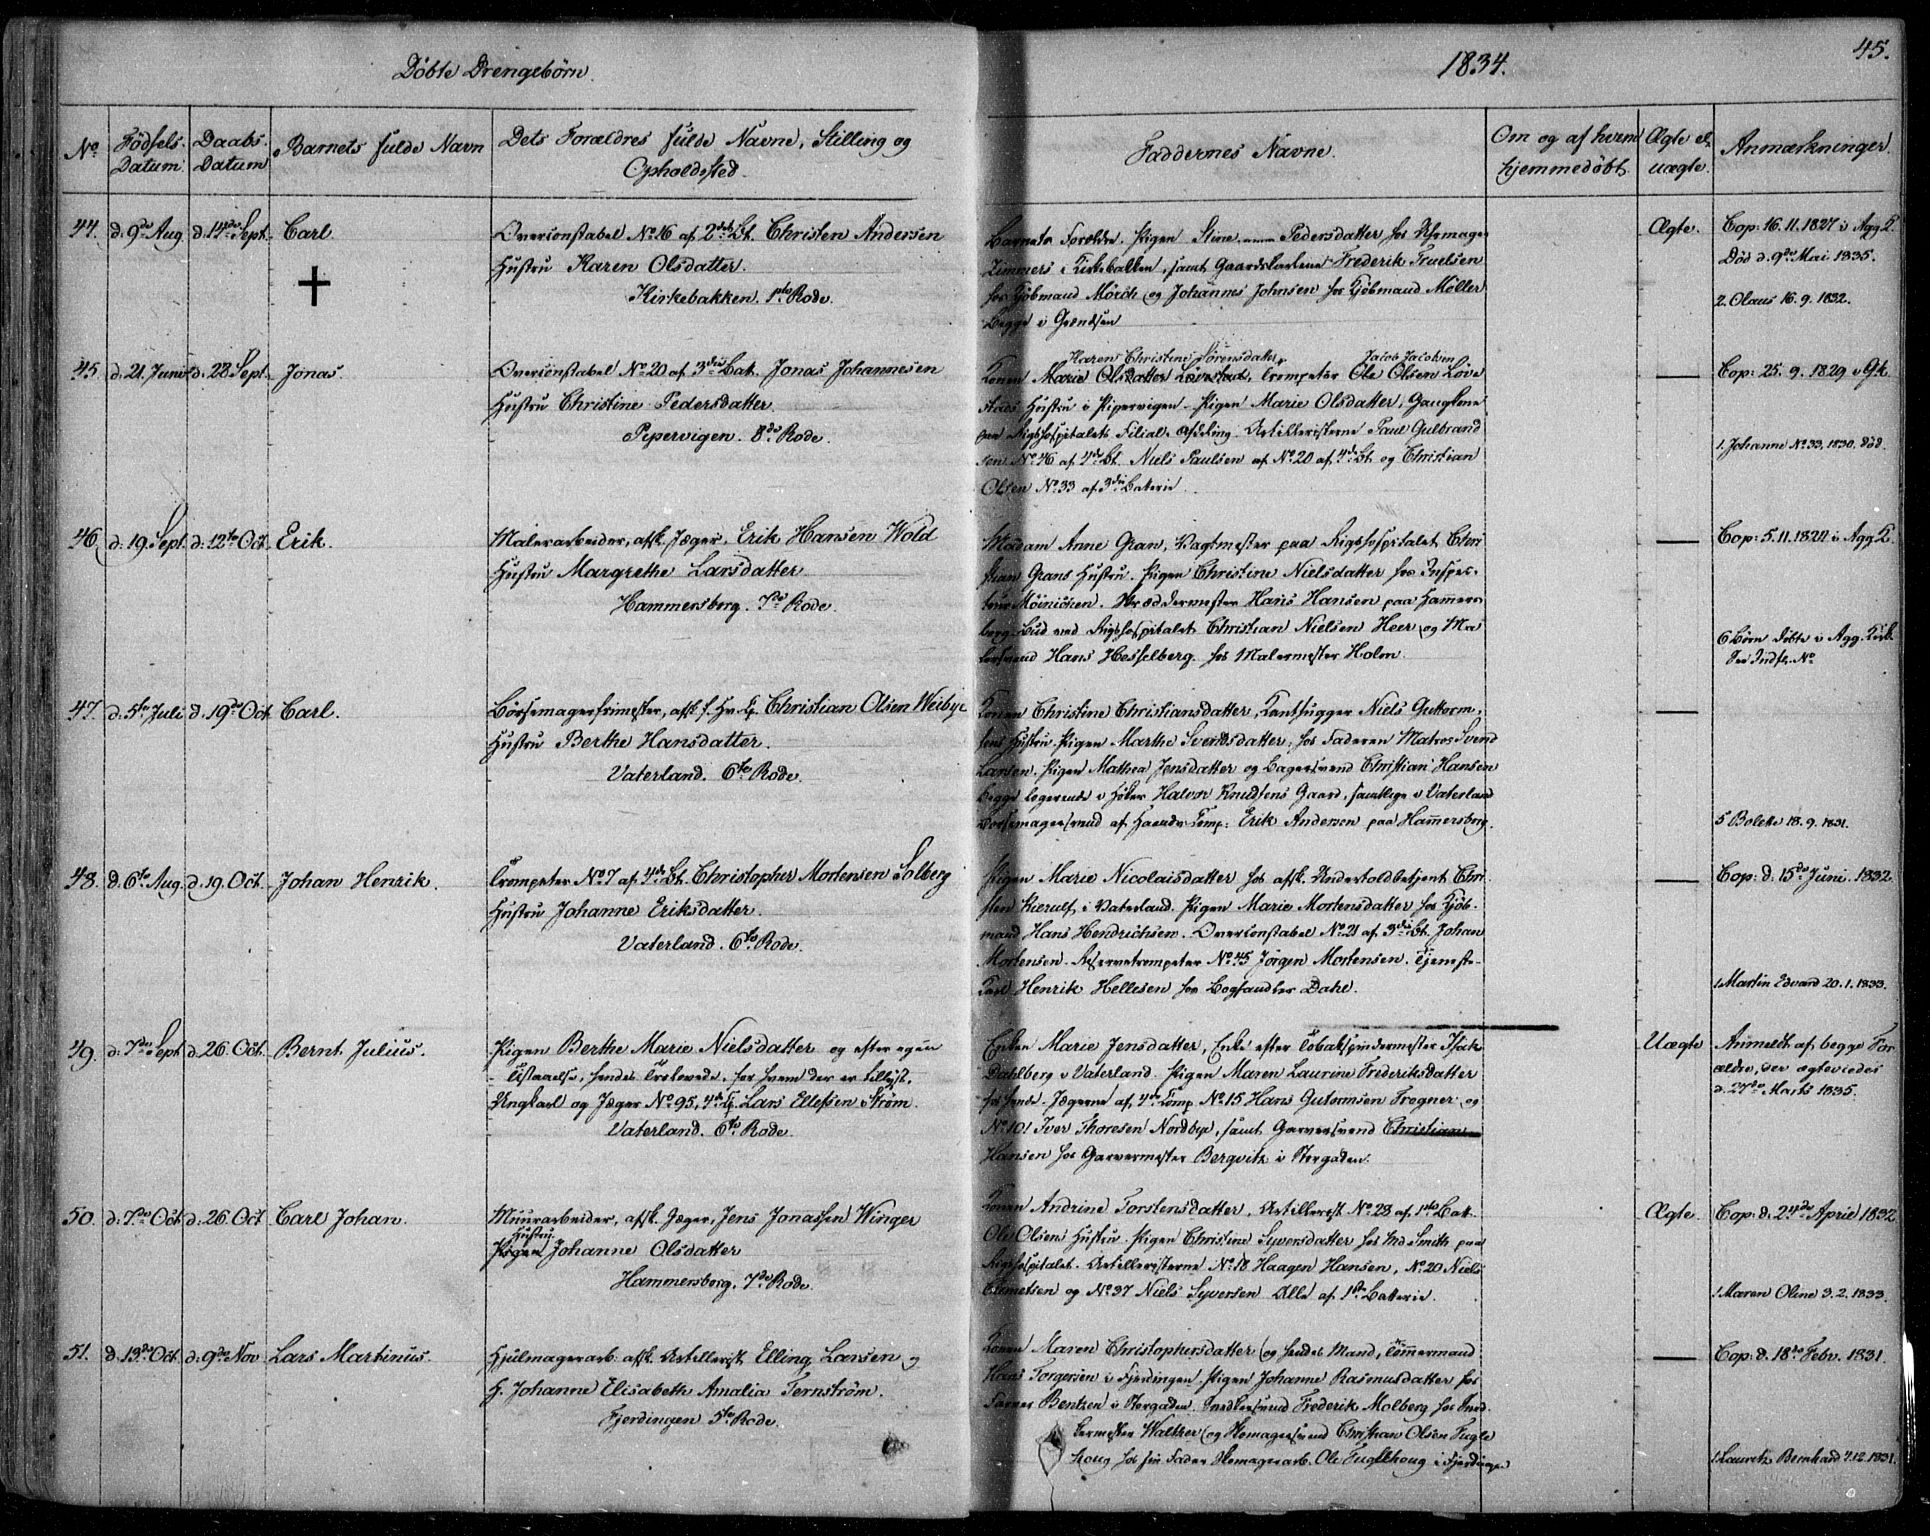 Döbte Drengebörn.
1834.
45.
No
Födsels Datum
Daabs Datum
Barnets fulde Navn
Dets Forældres fulde Navne, Stilling og
Opholdssted.
Faddernes Navne.
Om og af hvem
hjemmedöbt
Ægte el.
uægte.
Anmærkninger.
44. d. 9de Aug d. 14de Sept. Carl
Overconstabel No 16 af 2det Bt. Christen Andersen
Hustru Karen Olsdatter.
Kirkebakken. 1ste Rode.
Barnets Forældre. Pigen Stine Pedersdatter hos Uhrmager
Zimmers i Kirkebakken, samt Gaardskarlene Frederik Truelsen
hos Kjöbmand Mörch og Johannes Johnsen hos Kjöbmand Möller
Begge i Grændsen
Ægte.
Cop: 16. 11. 1827 i Agg. K.
Död d. 9de Mai 1835.
2. Olaus 16. 9. 1832.
45. d. 21. Juni d. 28 Sept. Jonas.
Overconstabel No 20 af 3die Bat. Jonas Johannesen
Hustru Christine Pedersdatter.
Pipervigen. 8de Rode.
Karen Christine Sörensdatter Jacob Jacobsen
Konen Marie Olsdatter Lövestad, Trompeter Ole Olsen Löve
stads Hustru i Pipervigen. Pigen Marie Olsdatter, Gangkone
paa Rigshospitalets Filial-Afdeling. Artilleristerne Paul Gulbrand
sen No 46 af 4de Bt. Niels Paulsen af No 20 af 4de Bt. og Christian
Olsen No 33 af 3die Batterie.
Cop: 25. 9. 1829 i Gk.
1. Johanne No 33, 1830. död
46. d. 19. Sept. d. 12te Oct. Erik.
Malerarbeider, afsk. Jæger, Erik Hansen Wold
Hustru Margrethe Larsdatter.
Hammersborg. 7de Rode.
Madam Anne Gran, Vagtmester paa Rigshospitalet Chri
stian Grans Hustru. Pigen Christine Nielsdatter hos Inspec-
teur Möinichen. Skræddermester Hans Hansen paa Hamers
borg. Bud ved Rigshospitalet Christian Nielsen Heer og Ma
lersvend Hans Hesselberg hos Malermester Holm.
Cop: 5. 11. 1820 i Agg. K.
6 Börn döbte i Agg. Kirk.
47. d. 5te Juli d. 19de Oct Carl.
Börsemagerfrimester, afsk. f. Hv. Cp. Christian Olsen Weibye
Hustru Berthe Hansdatter.
Vaterland. 6te Rode.
Konen Christine Christiansdatter, Kanthugger Niels Guttorm-
sens Hustru. Pigen Marthe Svendsdatter, hos Faderen Matros Svend
Larsen. Pigen Mathea Jensdatter og Bagersvend Christian Hansen
begge logerende i Höker Halvor Knudsens Gaard, samtlige i Vaterland
Börsemagersvend af Haandv. Comp: Erik Andersen paa Hammersborg.
5 Bolette 18. 9. 1831.
48. d. 6te Aug. d. 19. Oct. Johan Henrik.
Trompeter No 7 af 4de Bt. Christopher Mortensen Solberg
Hustru Johanne Eriksdatter.
Vaterland. 6te Rode.
Pigen Marie Nicolaisdatter hos afsk. Undertoldbetjent Chri
sten Kierulf i Vaterland. Pigen Marie Mortensdatter hos Kjöb-
mand Hans Hendrichsen. Overconstabel No 21 af 3die Bt. Johan
Mortensen. Reservetrompeter No 45 Jörgen Mortensen. Tjeneste-
Karl Henrik Hellesen hos Boghandler Dahl.
Cop: d. 15de Juni. 1832.
1. Martin Edvard 20. 1. 1833.
49. d. 7de Sept d. 26. Oct. Bernt Julius.
Pigen Berthe Marie Nielsdatter og efter egen
Tilstaaelse, hendes Trolovede, for hvem der er tillyst,
Ungkarl og Jæger No 95, 4de Cp. Lars Ellefsen Ström.
Vaterland. 6te Rode.
Enken Marie Jensdatter, Enke efter Tobakspindermester Isak
Dahlberg i Vaterland. Pigen Maren Laurine Frederiksdatter
hos hende. Jægerne af 4de Comp No 15 Hans Gutormsen Frogner og
No 101 Iver Thoresen Nordbye, samt Garversvend Christian
Hansen hos Garvermester Bergvitz i Storgaden.
Uægte
Anmeldt af begge For
ældre, der ægteviedes
d. 27de Marts 1835.
50. d. 7de Oct d. 26 Oct Carl Johan.
Muurarbeider, afsk. Jæger, Jens Jonassen Winger
Hustru
Pigen Johanne Olsdatter
Hammersborg. 7de Rode.
Konen Andrine Torstensdatter, Artillerist No 28 af 1ste Bat.
Ole Olsens Hustru. Pigen Christine Syversdatter hos Md. Smith paa
Rigshospitalet. Artilleristerne No 18 Haagen Hansen, No 20 Niels
Clemetsen og No 37 Niels Syversen Alle af 1ste Batterie.
Ægte
Cop: d. 24de April 1832
1 Maren Oline 3. 2. 1833.
51. d. 13de Oct. d. 9de Nov Lars Martinus.
Hjulmagerarb. afsk. Artillerist Elling Larsen og
H. Johanne Elisabeth Amalia Ternström.
Fjerdingen 5te Rode.
Konen Maren Christophersdatter og hendes Mand, Tömmermand
Hans Torgersen i Fjerdingen. Pigen Johanne Rasmusdatter hos
Farver Bentzen i Storgaden. Snedkersvend Frederik Molberg hos Sned
kermester Walther og Skomagersvend Christian Olsen Fugle
houg hos sin Fader Skomagerarb. Ole Fuglehoug i Fjerdingen
Cop: d. 18de Febr. 1831.
1. Lauritz Bernhard 4. 12. 1831.